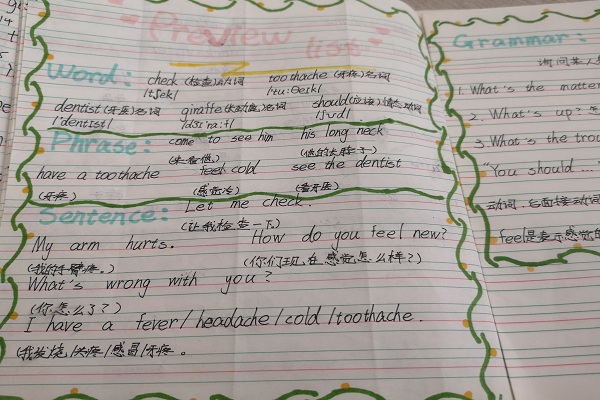 Preview lists
Word:
check (检查)动词 toothache (牙疼)名词
/tʃek/ /'tu:θeɪk/
dentist (牙医)名词 giraffe (长颈鹿)名词 should (应该)情态动词
/'dentɪst/ /dʒɪ'ra:f/ /ʃʊd/
Phrase:
come to see him his long neck
(来看他) (他的长脖子)
have a toothache feel cold see the dentist
(牙疼) (感觉冷) (看牙医)
Sentence: Let me check.
(让我检查一下)
My arm hurts. How do you feel new?
(我的手臂疼。) (你们现在感觉怎么样?)
What's wrong with you?
(你怎么了?)
I have a fever/headache/cold/toothache.
(我发烧/头疼/感冒/牙疼。
Grammar:
询问某人
1. What's the matter
2. What's up? 怎
3. What's the trou
"You should ..."
动词,后面接动词
feel是表示感觉的